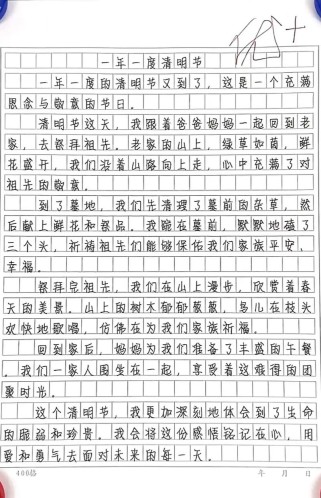 优+
一年一度清明节
一年一度的清明节又到了，这是一个充满
思念与敬意的节日。
清明节这天，我跟着爸爸妈妈一起回到老
家，去祭拜祖先。老家的山上，绿草如茵，鲜
花盛开，我们沿着山路向上走，心中充满了对
祖先的敬意。
到了墓地，我们先清理了墓前的杂草，然
后献上鲜花和祭品。我跪在墓前，默默地磕了
三个头，祈祷祖先们能够保佑我们家族平安，
幸福。
祭拜完祖先，我们在山上漫步，欣赏着春
天的美景。山上的树木郁郁葱葱，鸟儿在枝头
欢快地歌唱，仿佛在为我们家族祈福。
回到家后，妈妈为我们准备了丰盛的午餐
，我们一家人围坐在一起，享受着这难得的团
聚时光。
这个清明节，我更加深刻地体会到了生命
的脆弱和珍贵。我会将这份感悟铭记在心，用
爱和勇气去面对未来的每一天。
400格 年 月 日